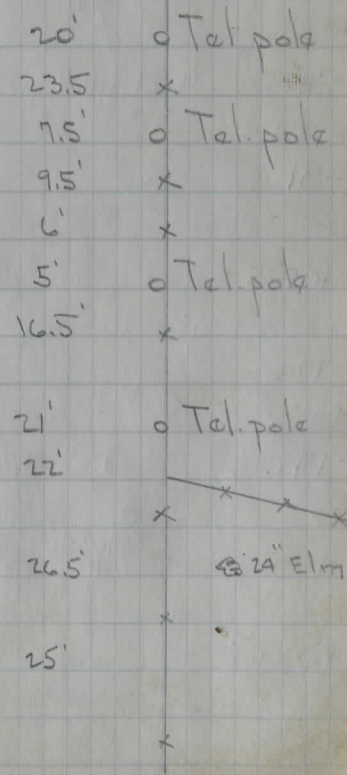 20' Tel. pole
23.5
7.5' Tel. pole
9.5'
6'
5' Tel. pole
16.5'
21' Tel. pole
22'
26.5' 24" Elm
25'